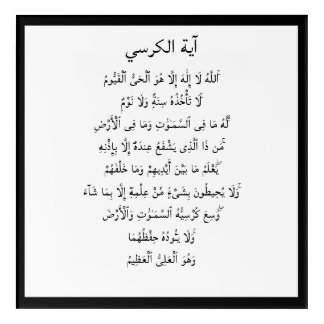 آية الكرسي
ٱللَّهُ لَا إِلَٰهَ إِلَّا هُوَ ٱلْحَىُّ ٱلْقَيُّومُ
لَا تَأْخُذُهُ سِنَةٌ وَلَا نَوْمٌ
لَّهُ مَا فِى ٱلسَّمَٰوَٰتِ وَمَا فِى ٱلْأَرْضِ
مَن ذَا ٱلَّذِى يَشْفَعُ عِندَهُ إِلَّا بِإِذْنِهِ
يَعْلَمُ مَا بَيْنَ أَيْدِيهِمْ وَمَا خَلْفَهُمْ
وَلَا يُحِيطُونَ بِشَىْءٍ مِّنْ عِلْمِهِ إِلَّا بِمَا شَآءَ
وَسِعَ كُرْسِيُّهُ ٱلسَّمَٰوَٰتِ وَٱلْأَرْضَ
وَلَا يَـُٔودُهُ حِفْظُهُمَا
وَهُوَ ٱلْعَلِىُّ ٱلْعَظِيمُ